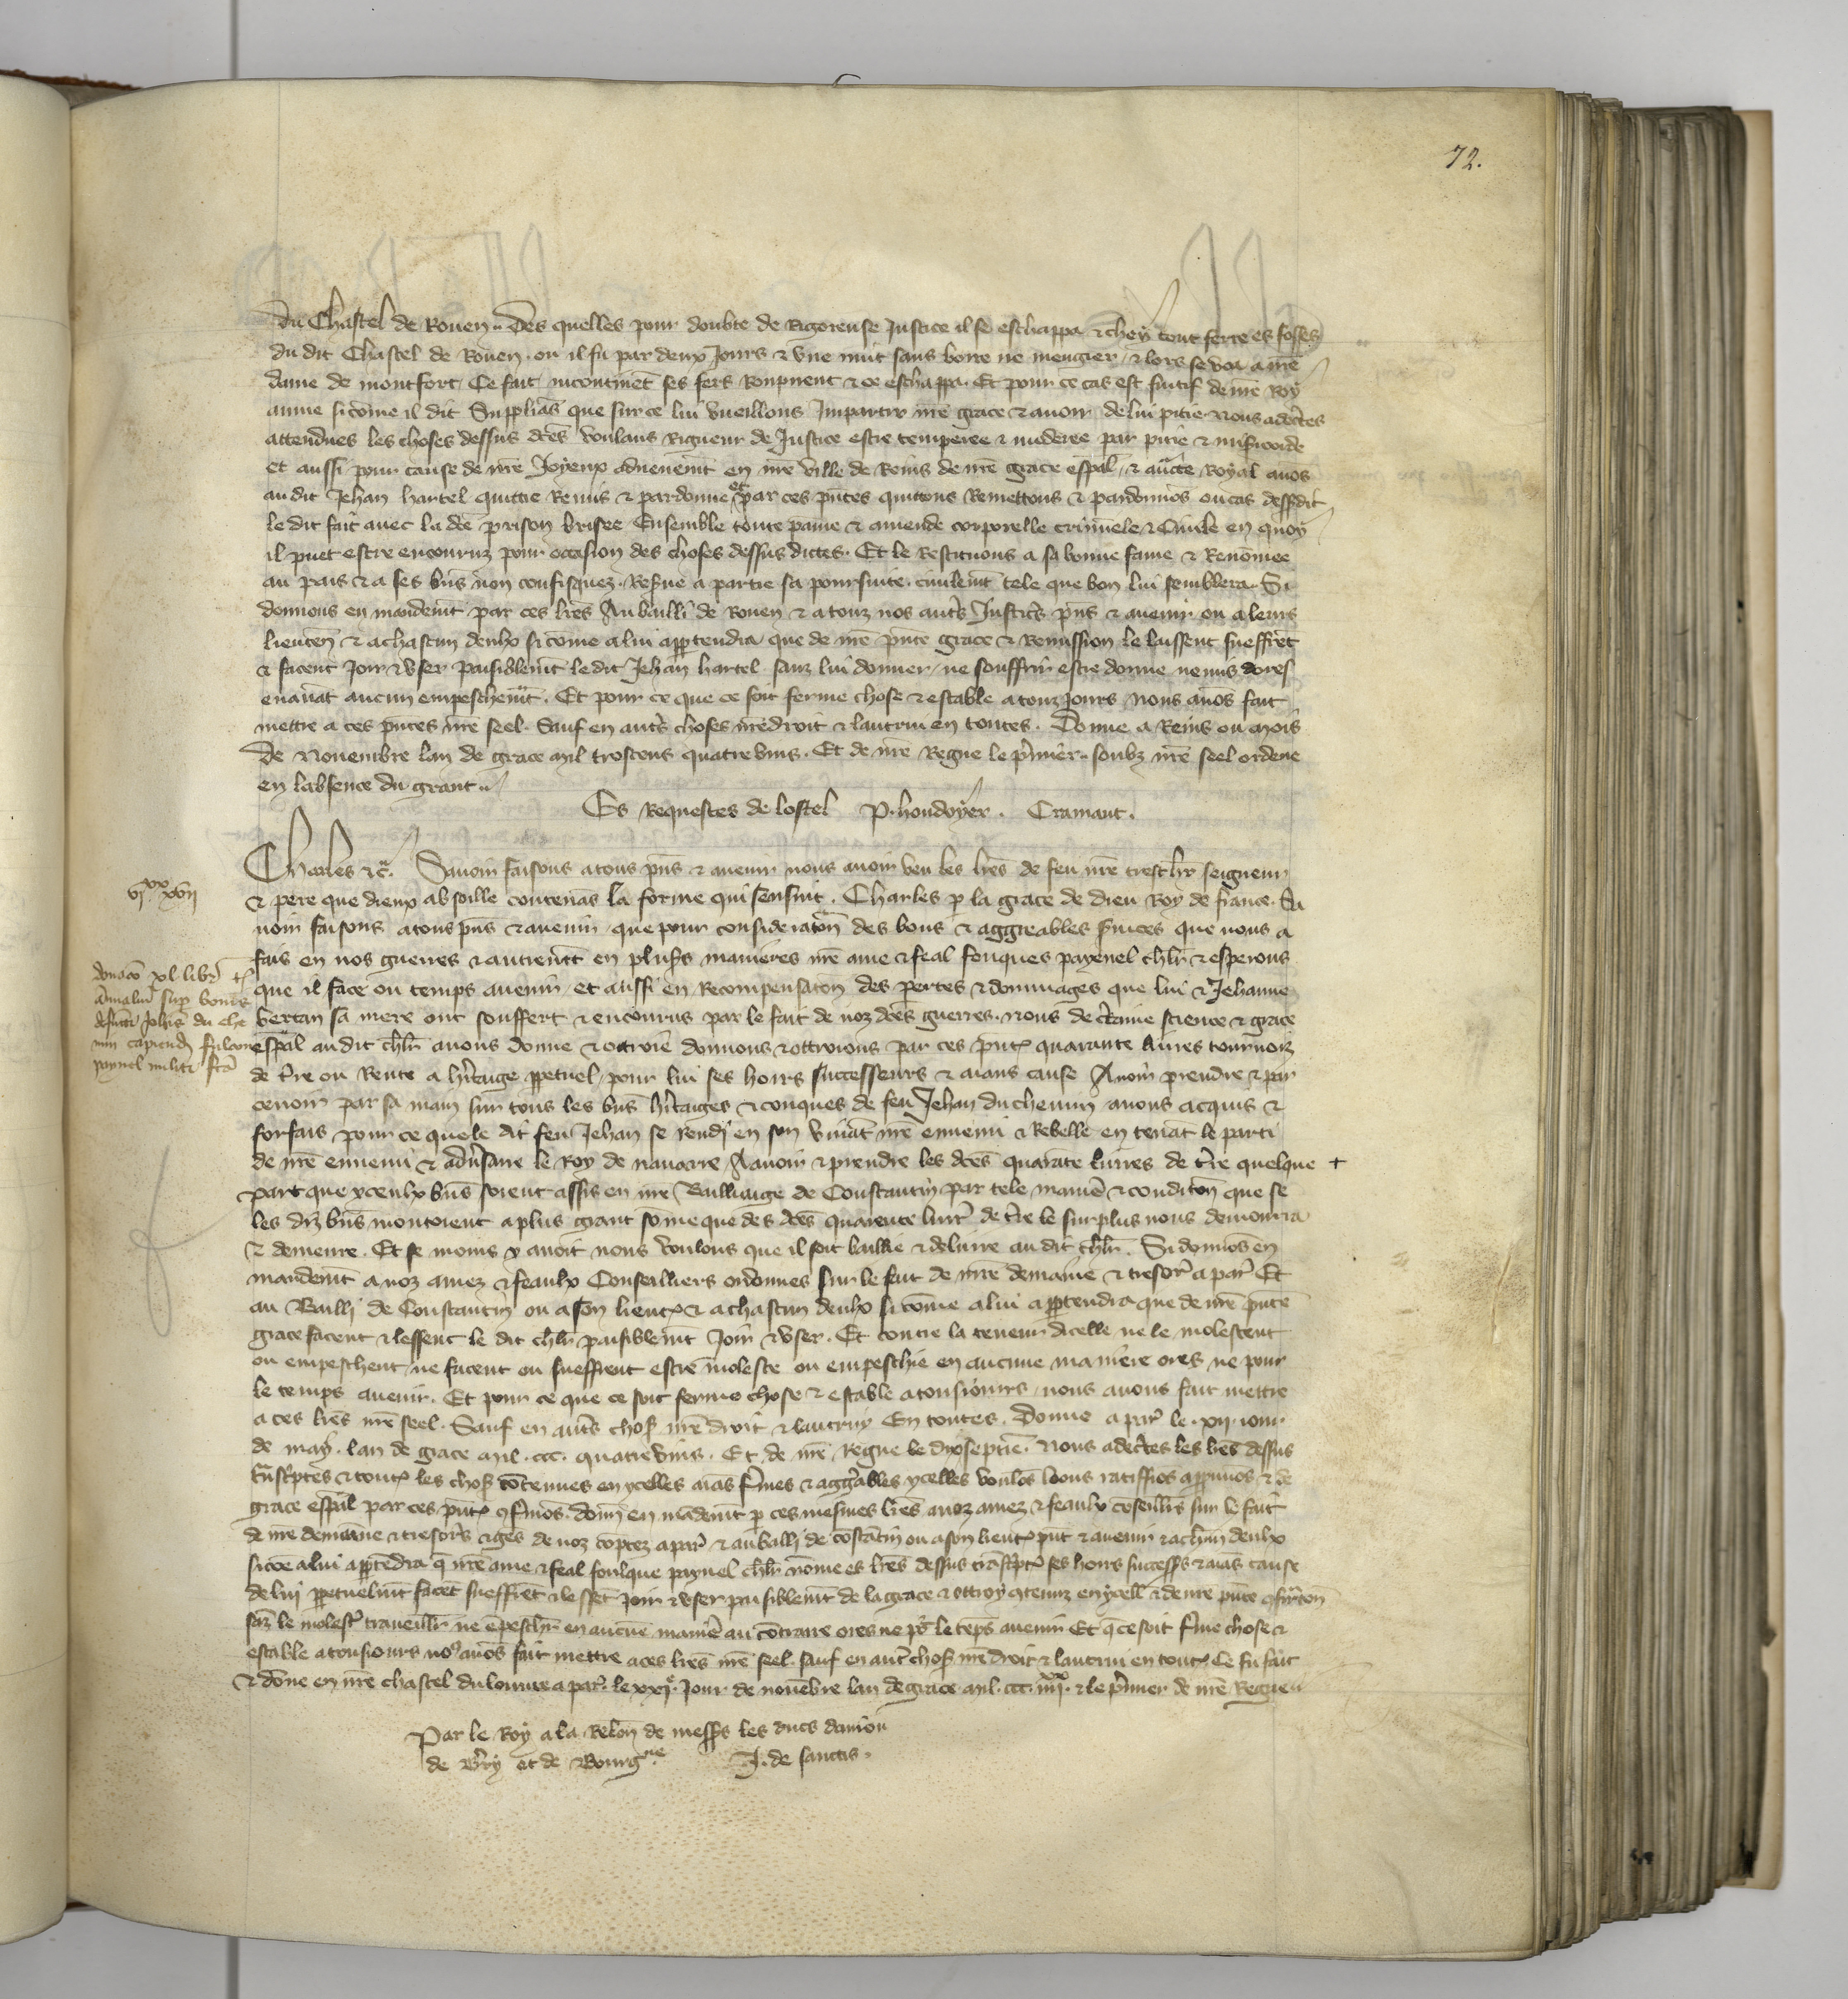 72.
du Chastel de Rouen. Des quelles pour doubte de Rigoreuse Justice il se eschappa & chey tout ferre es fossés
du dit Chastel de Rouen. ou il fu par deux Jours & une nuit sans boire ne mengier / & lors se voa a nre
dame de montfort / Ce fait incontinēt ses fers Rompirent & se eschappa. Et pour ce cas est fuitif de nre Roy
aume si cōme il dit Suppliās que sur ce lui vueillons Impartir nre grace & avoir de lui pitie. Nous adcertes
attendues les choses dessus dēs voulans Rigueur de Justice estre temperee & moderee par pitie & mīsīcorde
et aussi pour cause de nre Joyeux advenemt en nre ville de Reins de nre grace espāl. & auctē Royal avōs
au dit Jehan hartel quittie Remis & pardonne et par ces pntes quittons Remettons & pardonnōs ou cas dessusdit
le dit fait avec la dē prison brisee Ensemble toute paine & amende corporelle criminele & Civile en quoy
il puet estre encouruz pour occasion des choses dessus dictes. Et le Restituons a sa bonne fame & Renōmee
au pais & a ses bns non confisquez. Resvue a partie sa poursuite. civilemt tele que bon lui semblera. Si
donnons en mandemt par ces lres Au bailli de Rouen & a touz nos autrs Justicrs pns & avenir ou a leurs
lieuten & a chascun deulx si cōme a lui apptendra que de nre pnte grace & Remission le laissent sueffrēt
& facent Joir & user paisiblemt le dit Jehan hartel sanz lui donner / ne souffrir estre donne ne mis dores
enavāt aucun empeschemt. Et pour ce que ce soit ferme chose & estable a touz Jours Nous avōs fait
mettre a ces pntes nre seel. Sauf en autrs choses nre droit & lautrui en toutes. Donne a Reins ou mois
De Novembre lan de grace mil troscens quatrevins. Et de nre Regne le pmier. soubz nre seel ordene
en labsence du grant.
Es Requestes de lostel P. houdoyer. Cramaut.
vj xx xvij
Charles &c. Savoir faisons a tous pns & avenir nous avoir veu les lres de feu nre treschr seigneur
& pere que dieux absoille contenās la forme qui sensuit. Charles p la grace de dieu Roy de france. Sa
voir faisons a tous pns & avenir / que pour consideraton des bons & aggreables svices que nous a
fais en nos guerres & autremt en plussrs manieres nre ame & feal fouques paynel chlr & esperons
que il face ou temps avenir / et aussi en Recompensaton des pertes & dommages que lui & Jehanne
bertan sa mere ont souffert & encourus par le fait de noz dēs guerres. Nous de crtaine science & grace
espāl au dit chlr avons donne & octroie donnons & ottroions par ces pntes quarante livres tournois
de tre ou Rente a hritaige ppetuel / pour lui ses hoirs successeurs & aians cause A avoir prendre & par
cevoir par sa main sur tous les bns hritaiges & conques de feu Jehan du chemin / a nous acquis &
forfais pour ce que le dit feu Jehan se rendi en son vivāt nre ennemi & Rebelle en tenāt le parti
de nre ennemi & advsaire le Roy de navarre / A avoir & prendre les dēs quarāte livres de tre quelque +
part que yceulx bns soient assis en nre Bailliaige de Constantin par tele manie & conditon que se
les diz bns montoient a plus grant sōme que des dēs quarente livrs de tre le surplus nous demourra
& demeure. Et se moins y avoit nous voulons que il soit baillie & delivre au dit chlr. Si donnōs en
mandemt a noz amez & feaulx Conseilliers ordonnes sur le fait de nre demaine & tresorrs a pars Et
au Bailli de Constantin ou a son lieut & a chascun deulx si cōme a lui apptendra que de nre pnte
grace facent & lessent le dit chlr paisiblemt Joir & user. Et contre la teneur dicelle ne le molestent
ou empeschent / ne facent ou sueffrent estre moleste ou empeschie en aucune maniere ores ne pour
le temps avenir. Et pour ce que ce soit ferme chose & estable a tousiours / nous avons fait mettre
a ces lres nre seel. Sauf en autrs chos nre droit & lautruy En toutes. Donne a pars le xij. iour
de may. lan de grace mil. ccc. quatrevins. Et de nre Regne le dixseptie. Nous adcrtes les lres dessus
trāscptes & toutes les chos cōtenues en ycelles aiās fmes & aggrables ycelles voulōs loons ratiffiōs appuvōs & de
grace espāl par ces pntes cfmōs. donn en mādemt p ces mesmes lres a noz amez & feaulx cōseillrs sur le fait
de nre demaine & tresorrs & gēs de noz cōptez a pars & au bailli de cōstātin ou a son lieut pnt & avenir & a chun deulx
si cōe a lui apptēdra q nre ame & feal foulque paynel chlr nōme es lres dessus trāscptes ses hoirs successrs & aiās cause
de lui ppetuelmt facēt sueffrēt & lessēt Joir & user paisiblemt de la grace & ottroy ctenuz en ycelles & de nre pnte cfirmaton
sāz le molester travaillr ne ēpeschr en aucūe maniē au cōtraire ores ne pr le tēps avenir Et q ce soit fme chose &
estable a tousiours no9 avōs fait mettre a ces lres nre seel. sauf en autrs chos nre droit & lautrui en toutes Ce fu fait
& dōne en nre chastel du louvre a pars. le xxj. Jour de novēbre lan de grace mil. ccc. iiii xx. & le pmier de nre Regne
Par le Roy a la Relon de messrs les ducs daniou
de Brry et de Bourgne J. de sanctis.
donacō xl. libr t
āmalm sup bonis
defūcti Johis du che
min capiend fulconi
paynel militi fca